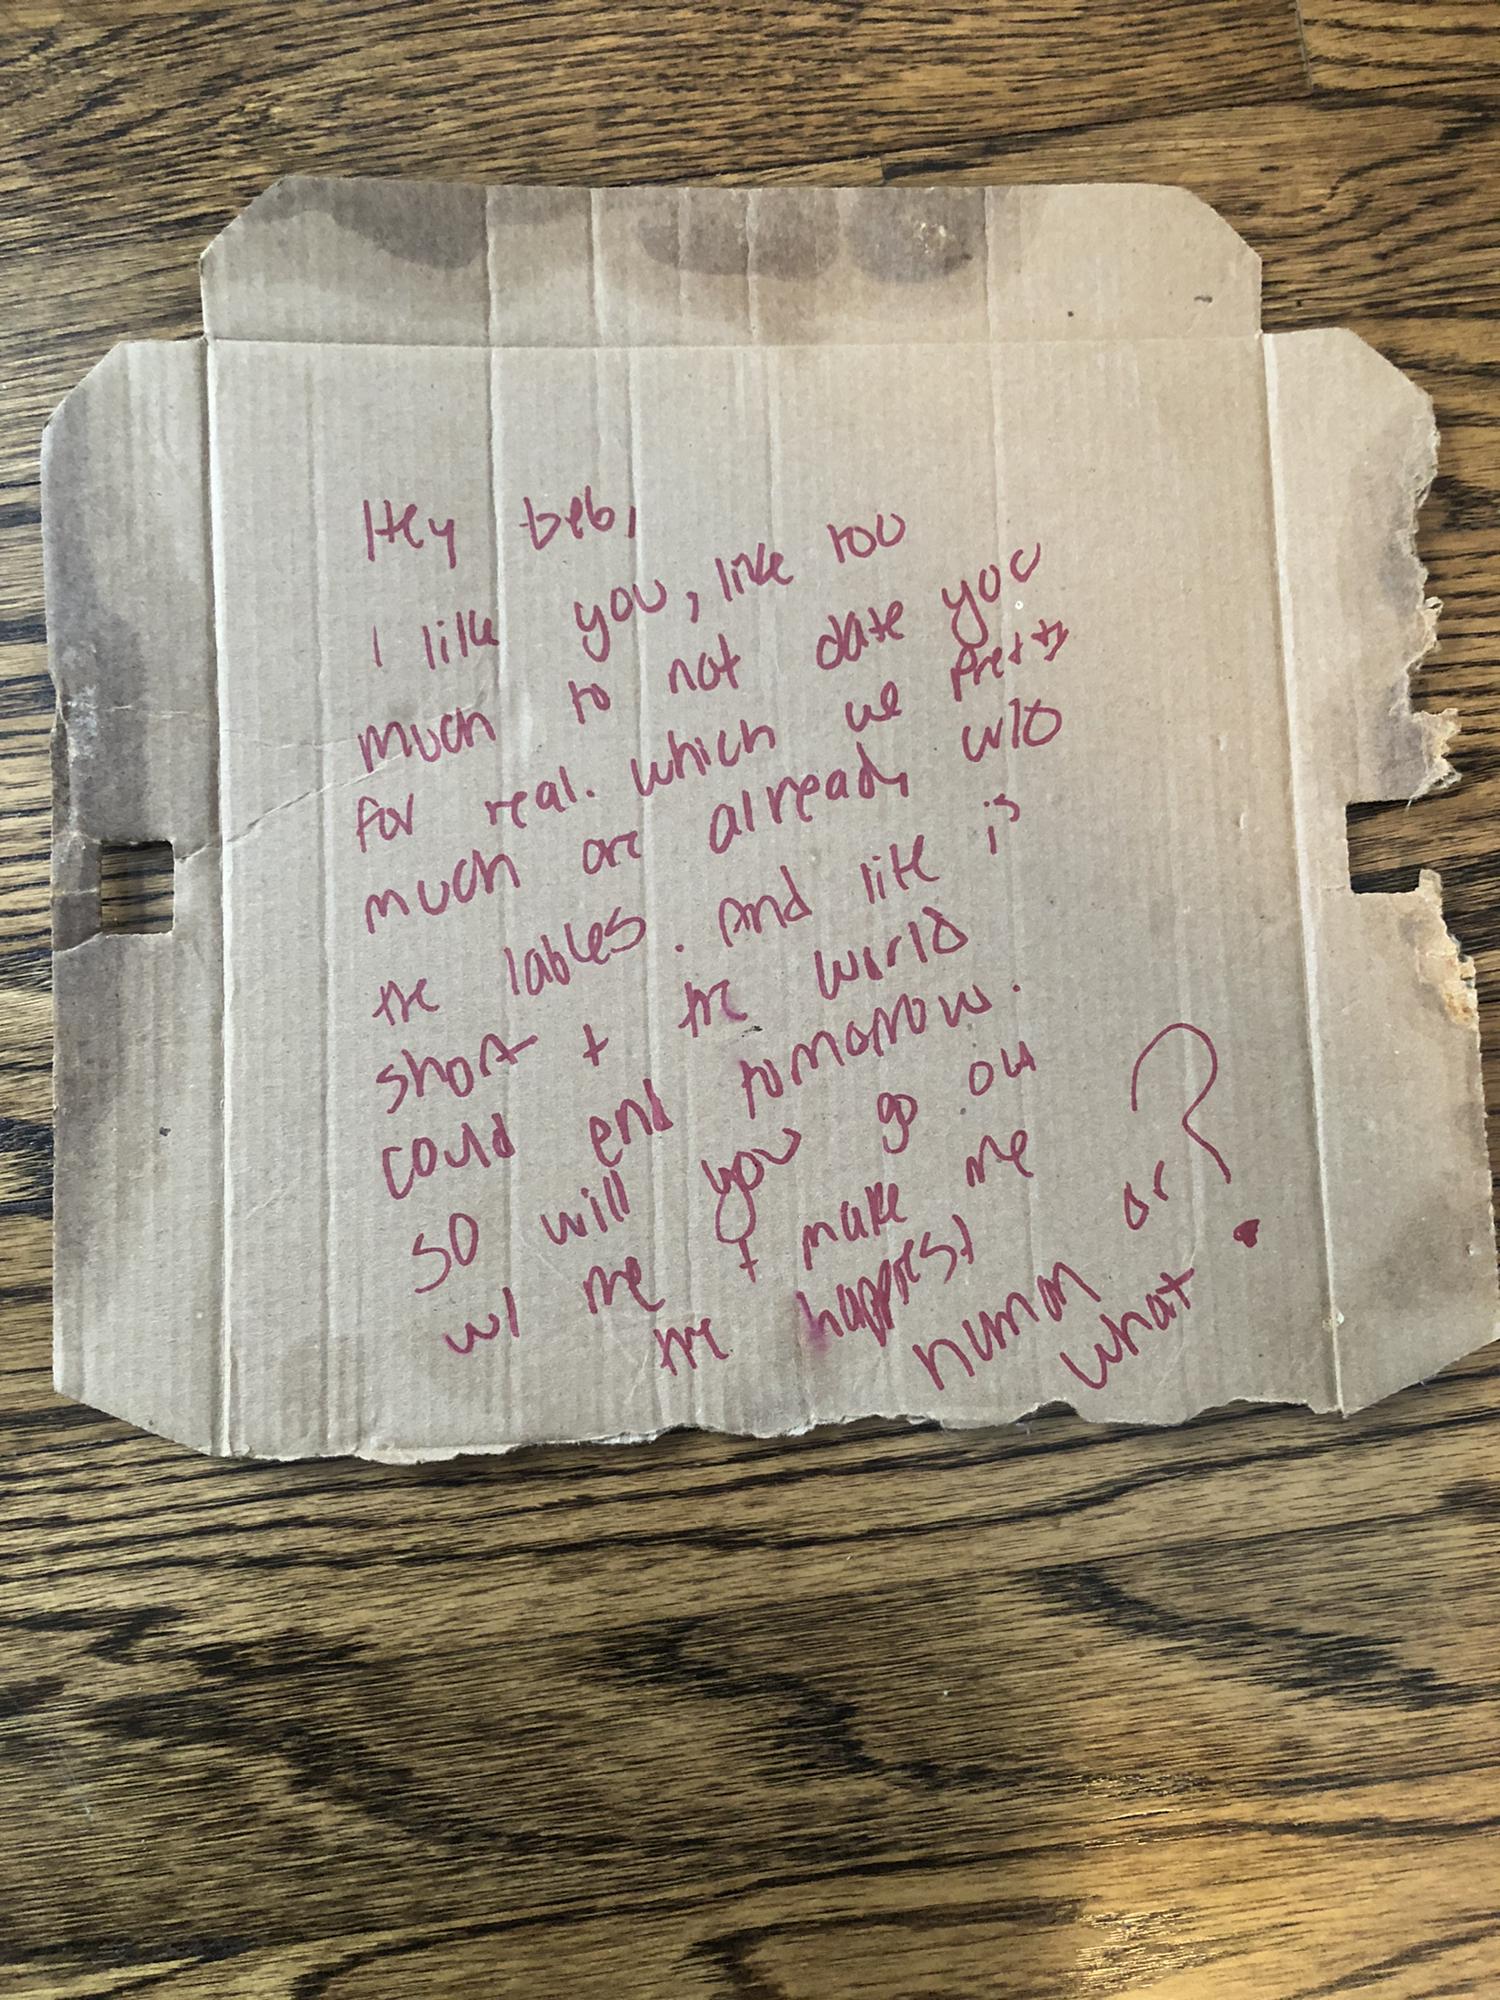 Hey beb,
I like you, like too
much to not date you
for real. which we pretty
much are already w/o
the lables. And life is
short + the world
could end tomorrow.
so will you go out
w/ me + make me
the happiest
human or
what?